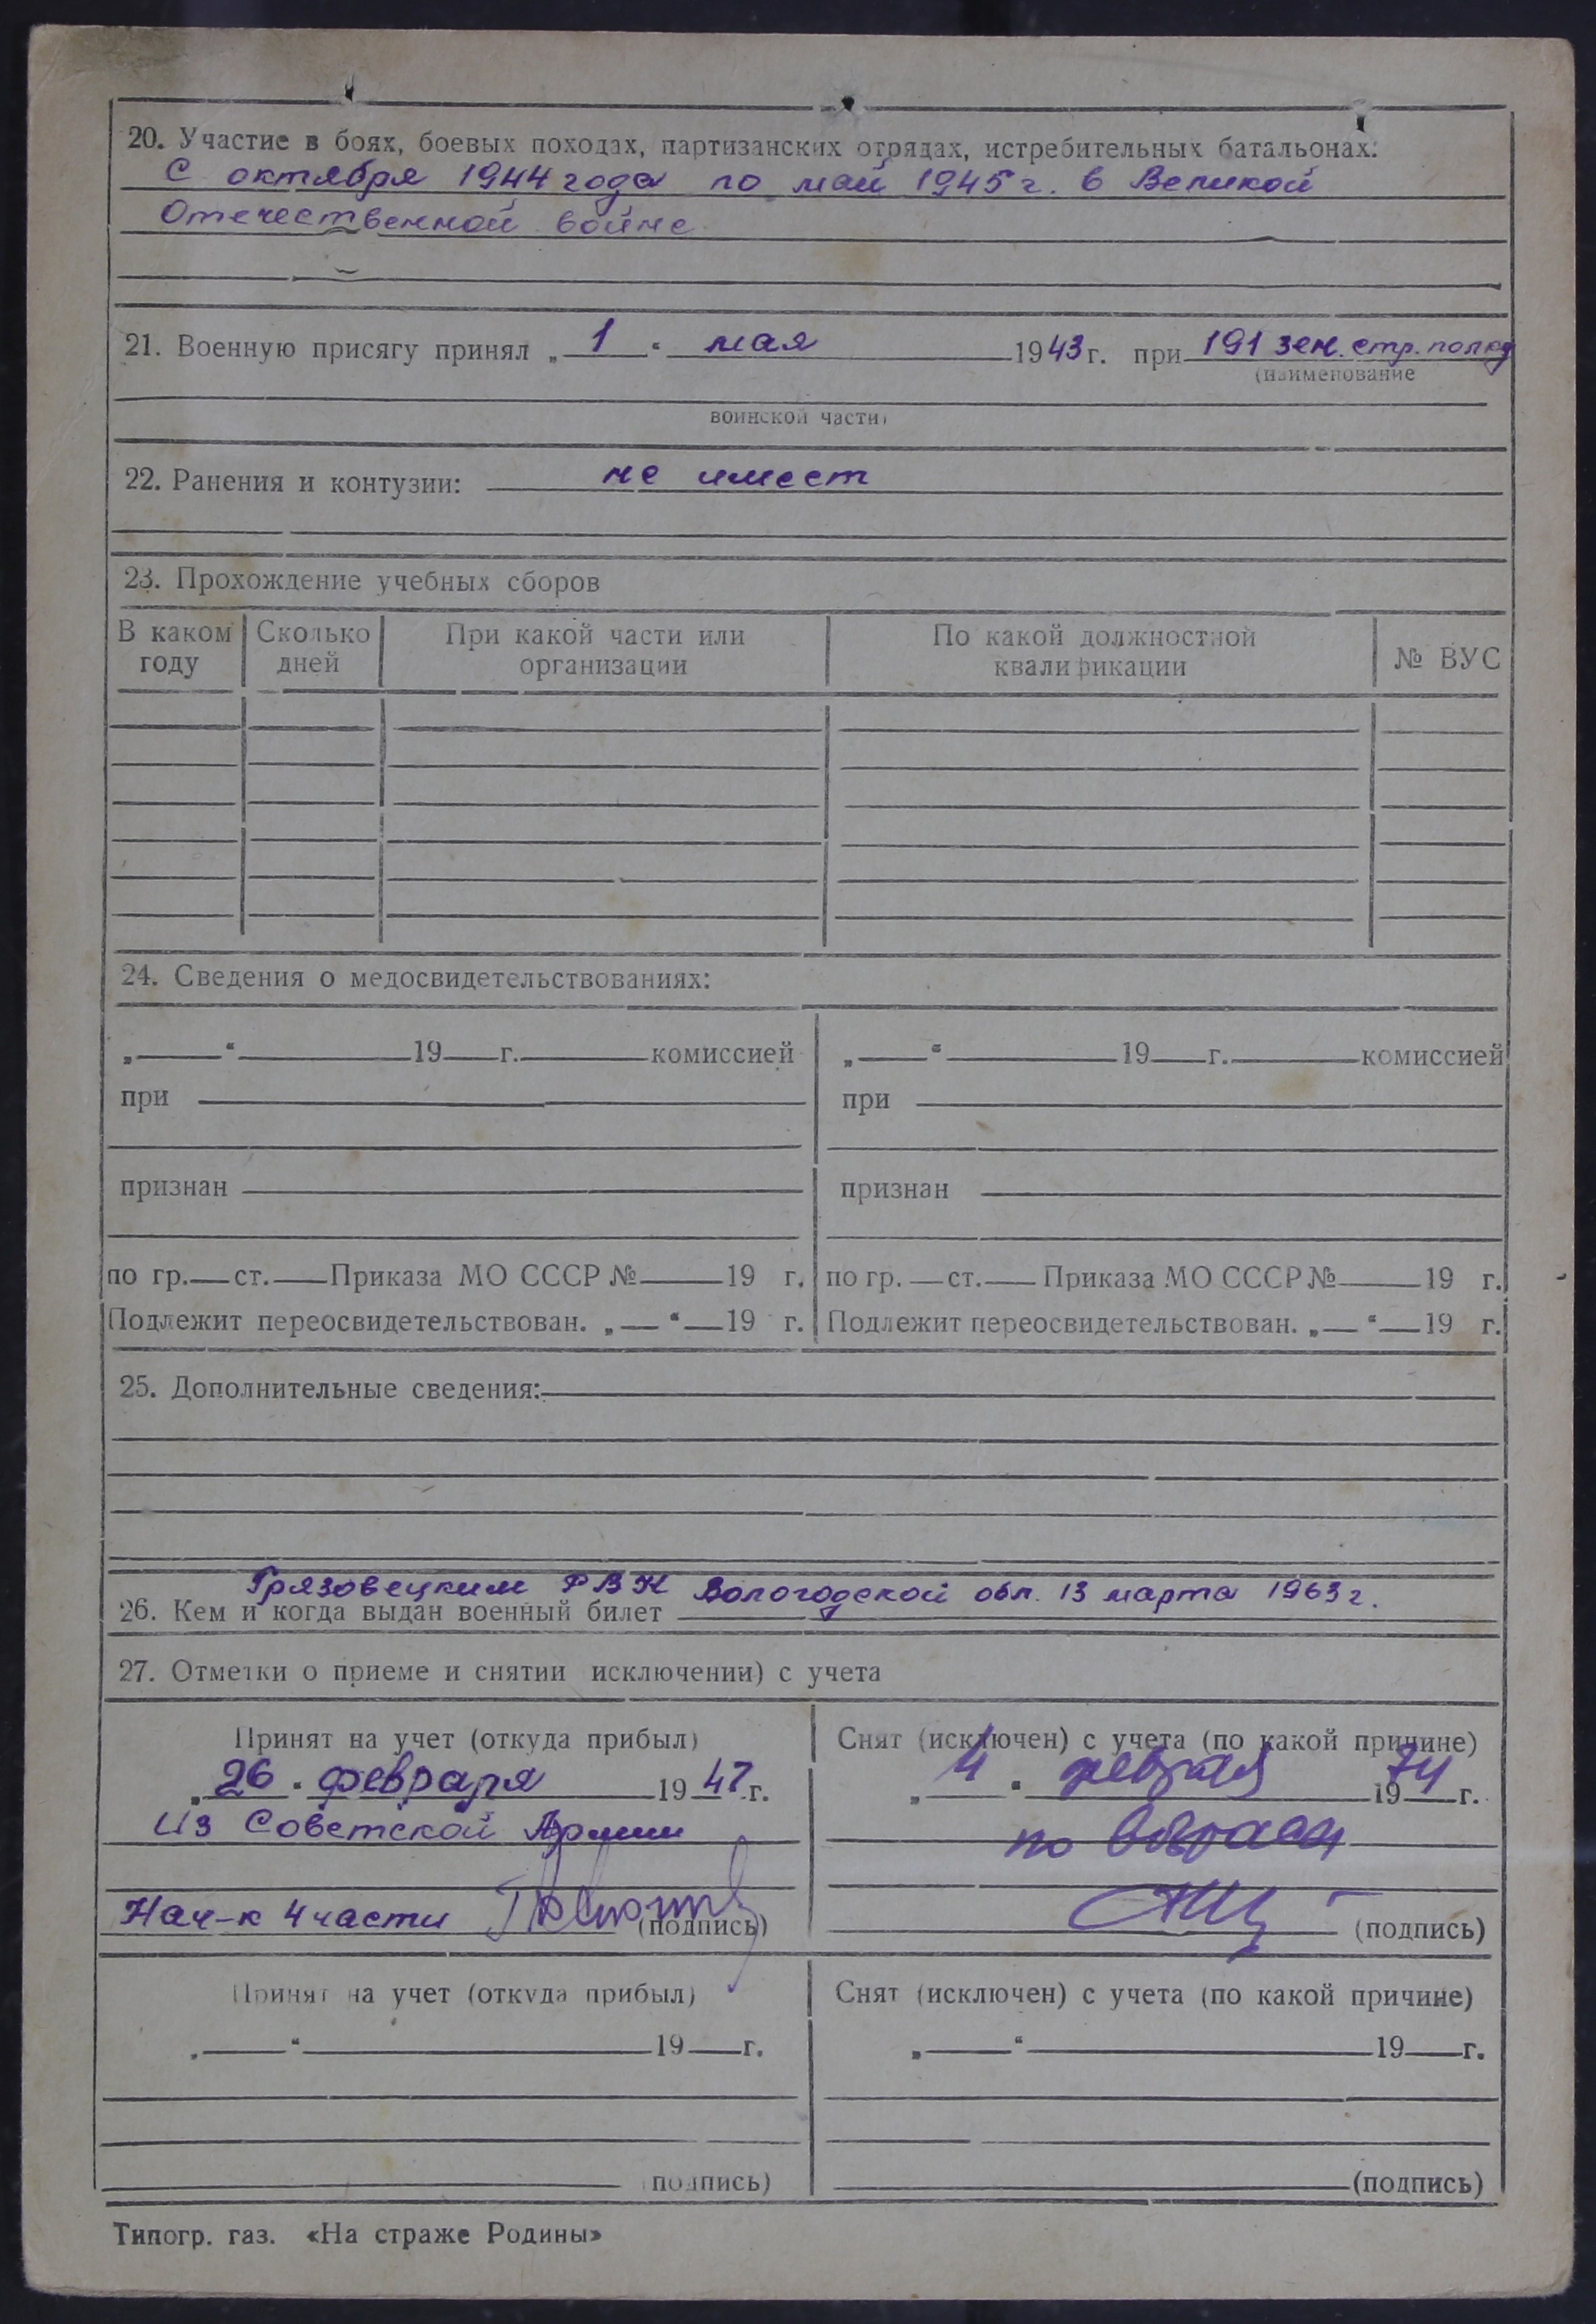 20. Участие в боях, боевых походах, партизанских отрядах, истребительных батальонах:
С октября 1944 года по май 1945 г. в Великой
Отечественной войне
21. Военную присягу принял „ 1 “ мая 1943 г. при 191 зен. стр. полку
(наименование
воинской части)
22. Ранения и контузии: не имеет
23. Прохождение учебных сборов
В каком году Сколько дней При какой части или организации По какой должностной квалификации № ВУС
24. Сведения о медосвидетельствованиях:
„ “ 19 г. комиссией „ “ 19 г. комиссией
при при
признан признан
по гр. ст. Приказа МО СССР № 19 г. по гр. ст. Приказа МО СССР № 19 г.
Подлежит переосвидетельствован. „ “ 19 г. Подлежит переосвидетельствован. „ “ 19 г.
25. Дополнительные сведения:
Грязовецким РВК Вологодской обл. 13 марта 1963 г.
26. Кем и когда выдан военный билет
27. Отметки о приеме и снятии исключении) с учета
Принят на учет (откуда прибыл) Снят (исключен) с учета (по какой причине)
„ 26 “ февраля 1947 г. „ 4 “ февраля 1974 г.
Из Советской Армии по возрасту
Нач-к 4 части (подпись) (подпись)
Принят на учет (откуда прибыл) Снят (исключен) с учета (по какой причине)
„ “ 19 г. „ “ 19 г.
(подпись) (подпись)
Типогр. газ. «На страже Родины»